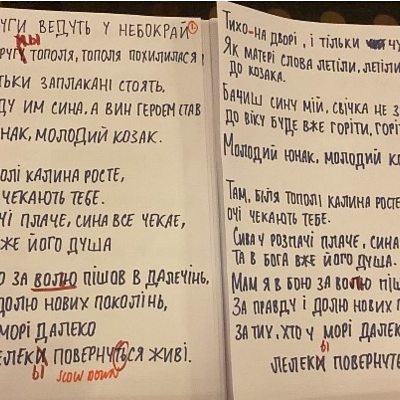 УГИ ВЕДУТЬ У НЕБОКРАЙ 1
МЫ
РУГ ТОПОЛЯ, ТОПОЛЯ ПОХИЛИЛАСЯ
ТЬКИ ЗАПЛАКАНІ СТОЯТЬ,
ДУ ИМ СИНА, А ВИН ГЕРОЕМ СТАВ
НАК, МОЛОДИЙ КОЗАК.
ОЛІ КАЛИНА РОСТЕ,
ЧЕКАЮТЬ ТЕБЕ.
ЧІ ПЛАЧЕ, СИНА ВСЕ ЧЕКАЄ,
ВЖЕ ЙОГО ДУША
Ю ЗА ВОЛЮ ПІШОВ В ДАЛЕЧІНЬ,
ДОЛЮ НОВИХ ПОКОЛІНЬ,
МОРІ ДАЛЕКО
ЛЕЛЕКИ ПОВЕРНУТЬСЯ ЖИВІ.
Ы SLOW DOWN
ТИХО-НА ДВОРІ, І ТІЛЬКИ ЧУ
ЯК МАТЕРІ СЛОВА ЛЕТІЛИ, ЛЕТІЛИ
ДО КОЗАКА.
БАЧИШ СИНУ МІЙ, СВІЧКА НЕ З
ДО ВІКУ БУДЕ ВЖЕ ГОРІТИ, ГОРІТ
МОЛОДИЙ ЮНАК, МОЛОДИЙ К
ТАМ, БІЛЯ ТОПОЛІ КАЛИНА РОСТЕ
ОЧІ ЧЕКАЮТЬ ТЕБЕ.
СИВА У РОЗПАЧІ ПЛАЧЕ, СИНА
ТА В БОГА ВЖЕ ЙОГО ДУША.
МАМ Я В БОЮ ЗА ВОЛЮ ПІШ
ЗА ПРАВДУ І ДОЛЮ НОВИХ П
ЗА ТИХ, ХТО У МОРІ ДАЛЕК
Ы
ЛЕЛЕКИ ПОВЕРНУТ